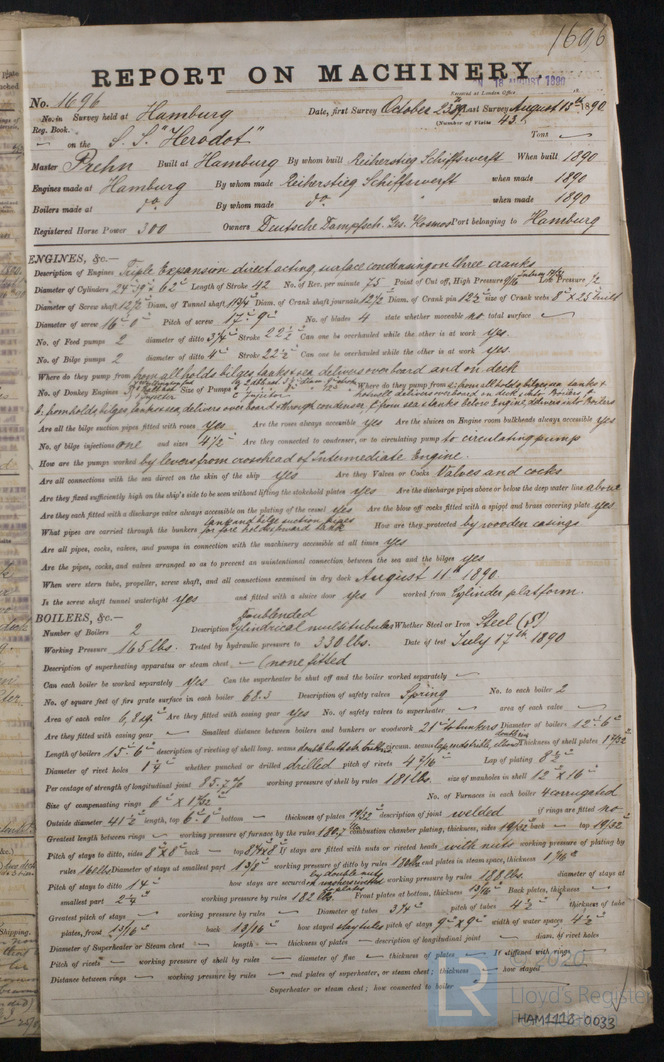 1696
REPORT ON MACHINERY.
18 AUGUST 1890
Received at London Office
No. 1696
No. in Survey held at Hamburg Date, first Survey October 23rd Last Survey August 15th 1890
Reg. Book. (Number of Visits 43)
on the S.S. "Herodot" Tons
Master Prehn Built at Hamburg By whom built Reiherstieg Schiffswerft When built 1890
Engines made at Hamburg By whom made Reiherstieg Schiffswerft when made 1890
Boilers made at do. By whom made do. when made 1890
Registered Horse Power 300 Owners Deutsche Dampfsch. Ges. Kosmos Port belonging to Hamburg
ENGINES, &c.—
Description of Engines Triple Expansion direct acting, surface condensing on three cranks
Diameter of Cylinders 62" Length of Stroke 42 No. of Rev. per minute 75 Point of Cut off, High Pressure Low Pressure
Diameter of Screw shaft 12 1/2 Diam. of Tunnel shaft 11 3/4 Diam. of Crank shaft journals 12 1/2 Diam. of Crank pin 12 1/2 size of Crank webs 8" x 25" built
Diameter of screw 16' 0" Pitch of screw 17' 9" No. of blades 4 state whether moveable no total surface
No. of Feed pumps 2 diameter of ditto 3 3/4" Stroke 22 1/2" Can one be overhauled while the other is at work yes.
No. of Bilge pumps 2 diameter of ditto 4" Stroke 22 1/2" Can one be overhauled while the other is at work yes.
Where do they pump from from all holds bilges tanks & sea, delivers overboard and on deck
No. of Donkey Engines Size of Pumps Where do they pump from from all holds, bilges, sea tanks &
from holds bilges tanks & sea, delivers overboard & through condenser, from sea & tanks below Engine, delivers into Boilers
Are all the bilge suction pipes fitted with roses yes Are the roses always accessible yes Are the sluices on Engine room bulkheads always accessible yes
No. of bilge injections one and sizes 4 1/2" Are they connected to condenser, or to circulating pump to circulating pump
How are the pumps worked by levers from crosshead of Intermediate Engine.
Are all connections with the sea direct on the skin of the ship yes Are they Valves or Cocks Valves and cocks
Are they fixed sufficiently high on the ship's side to be seen without lifting the stokehold plates yes Are the discharge pipes above or below the deep water line above
Are they each fitted with a discharge valve always accessible on the plating of the vessel yes Are the blow off cocks fitted with a spigot and brass covering plate yes
What pipes are carried through the bunkers tank and bilge suction pipes for fore holds & ward tank How are they protected by wooden casings
Are all pipes, cocks, valves, and pumps in connection with the machinery accessible at all times yes
Are the pipes, cocks, and valves arranged so as to prevent an unintentional connection between the sea and the bilges yes
When were stern tube, propeller, screw shaft, and all connections examined in dry dock August 11th 1890
Is the screw shaft tunnel watertight yes and fitted with a sluice door yes worked from Cylinder platform.
BOILERS, &c.—
Number of Boilers 2 Description doubleended Cylindrical multitubular Whether Steel or Iron Steel (S)
Working Pressure 165 lbs. Tested by hydraulic pressure to 330 lbs. Date of test July 17th 1890
Description of superheating apparatus or steam chest none fitted
Can each boiler be worked separately yes Can the superheater be shut off and the boiler worked separately
No. of square feet of fire grate surface in each boiler 68.3 Description of safety valves Spring No. to each boiler 2
Area of each valve Are they fitted with easing gear yes No. of safety valves to superheater area of each valve
Are they fitted with easing gear Smallest distance between boilers and bunkers or woodwork 21" to bunkers Diameter of boilers 12' 6"
Length of boilers 15' 6" description of riveting of shell long. seams circum. seams Thickness of shell plates
Diameter of rivet holes whether punched or drilled drilled pitch of rivets 4 7/16" Lap of plating 8 1/2"
Per centage of strength of longitudinal joint 85.7% working pressure of shell by rules 181 lbs. size of manholes in shell 12" x 16"
Size of compensating rings No. of Furnaces in each boiler 4 corrugated
Outside diameter 41 1/2" length, top 6' 8" bottom thickness of plates 19/32 description of joint welded if rings are fitted no
Greatest length between rings working pressure of furnace by the rules combustion chamber plating, thickness, sides 19/32 back top 19/32
Pitch of stays to ditto, sides 8" x 8" back top If stays are fitted with nuts or riveted heads with nuts working pressure of plating by
rules 168 lbs Diameter of stays at smallest part 1 3/8" working pressure of ditto by rules end plates in steam space, thickness
Pitch of stays to ditto 14" how stays are secured by double nuts working pressure by rules 188 lbs. diameter of stays at
smallest part working pressure by rules 182 lbs Front plates at bottom, thickness 13/16 Back plates, thickness
Greatest pitch of stays working pressure by rules Diameter of tubes 3 1/4" pitch of tubes 4 1/2" thickness of tube
plates, front 13/16 back 13/16 how stayed stay tubes pitch of stays 9" x 9" width of water spaces 4 1/2"
Diameter of Superheater or Steam chest length thickness of plates description of longitudinal joint diam. of rivet holes
Pitch of rivets working pressure of shell by rules diameter of flue thickness of plates If stiffened with rings
Distance between rings working pressure by rules end plates of superheater, or steam chest; thickness how stayed
Superheater or steam chest; how connected to boiler
© 2020
LR
Lloyd's Register
HAM1112-0033